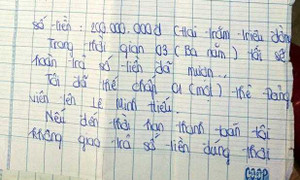 số tiền: 200.000.000đ (Hai trăm triệu đồng
Trong thời gian 03 (Ba năm) tôi sẽ
hoàn trả số tiền đã mượn..
Tôi đã thế chấp 01 (một) thẻ Đảng
viên tên Lê Minh Hiếu.
Nếu đến thời hạn thanh toán tôi
không giao trả số tiền đúng thời